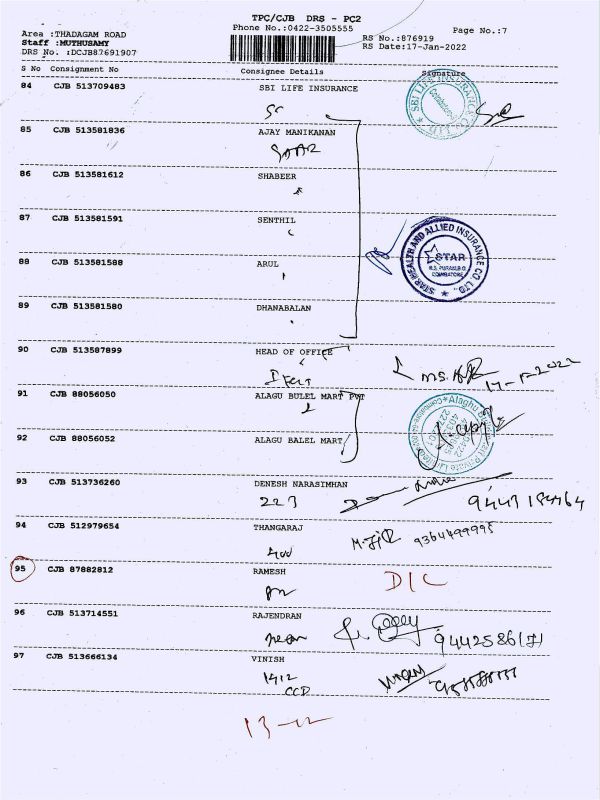 TPC/CJB DRS - PC2
Area :THADAGAM ROAD
Phone No.:0422-3505555
Page No.:7
Staff :MUTHUSAMY
RS No.:876919
DRS No. :DCJB87691907
RS Date:17-Jan-2022
S No Consignment No Consignee Details Signature
84 CJB 513709483 SBI LIFE INSURANCE
SBI LIFE INSURANCE CO. LTD.
85 CJB 513581836 AJAY MANIKANAN
STAR
86 CJB 513581612 SHABEER
87 CJB 513581591 SENTHIL
STAR HEALTH AND ALLIED INSURANCE CO. LTD.
STAR
R.S. PURAM B.O.
COIMBATORE
88 CJB 513581588 ARUL
89 CJB 513581580 DHANABALAN
90 CJB 513587899 HEAD OF OFFICE
17-1-2022
91 CJB 88056050 ALAGU BULEL MART PVT
92 CJB 88056052 ALAGU BALEL MART
93 CJB 513736260 DENESH NARASIMHAN
223
94 CJB 512979654 THANGARAJ
400
95 CJB 87882812 RAMESH
D/C
96 CJB 513714551 RAJENDRAN
97 CJB 513666134 VINISH
1412
CCD
13-12